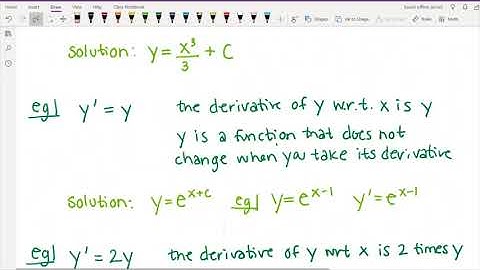 Home Insert Draw View Help Class Notebook
solution: y = x³/3 + C
eg1 y' = y the derivative of y w.r.t. x is y
y is a function that does not
change when you take its derivative
solution: y = e^(x+c) eg1 y = e^(x-1) y' = e^(x-1)
eg1 y' = 2y the derivative of y wrt x is 2 times y